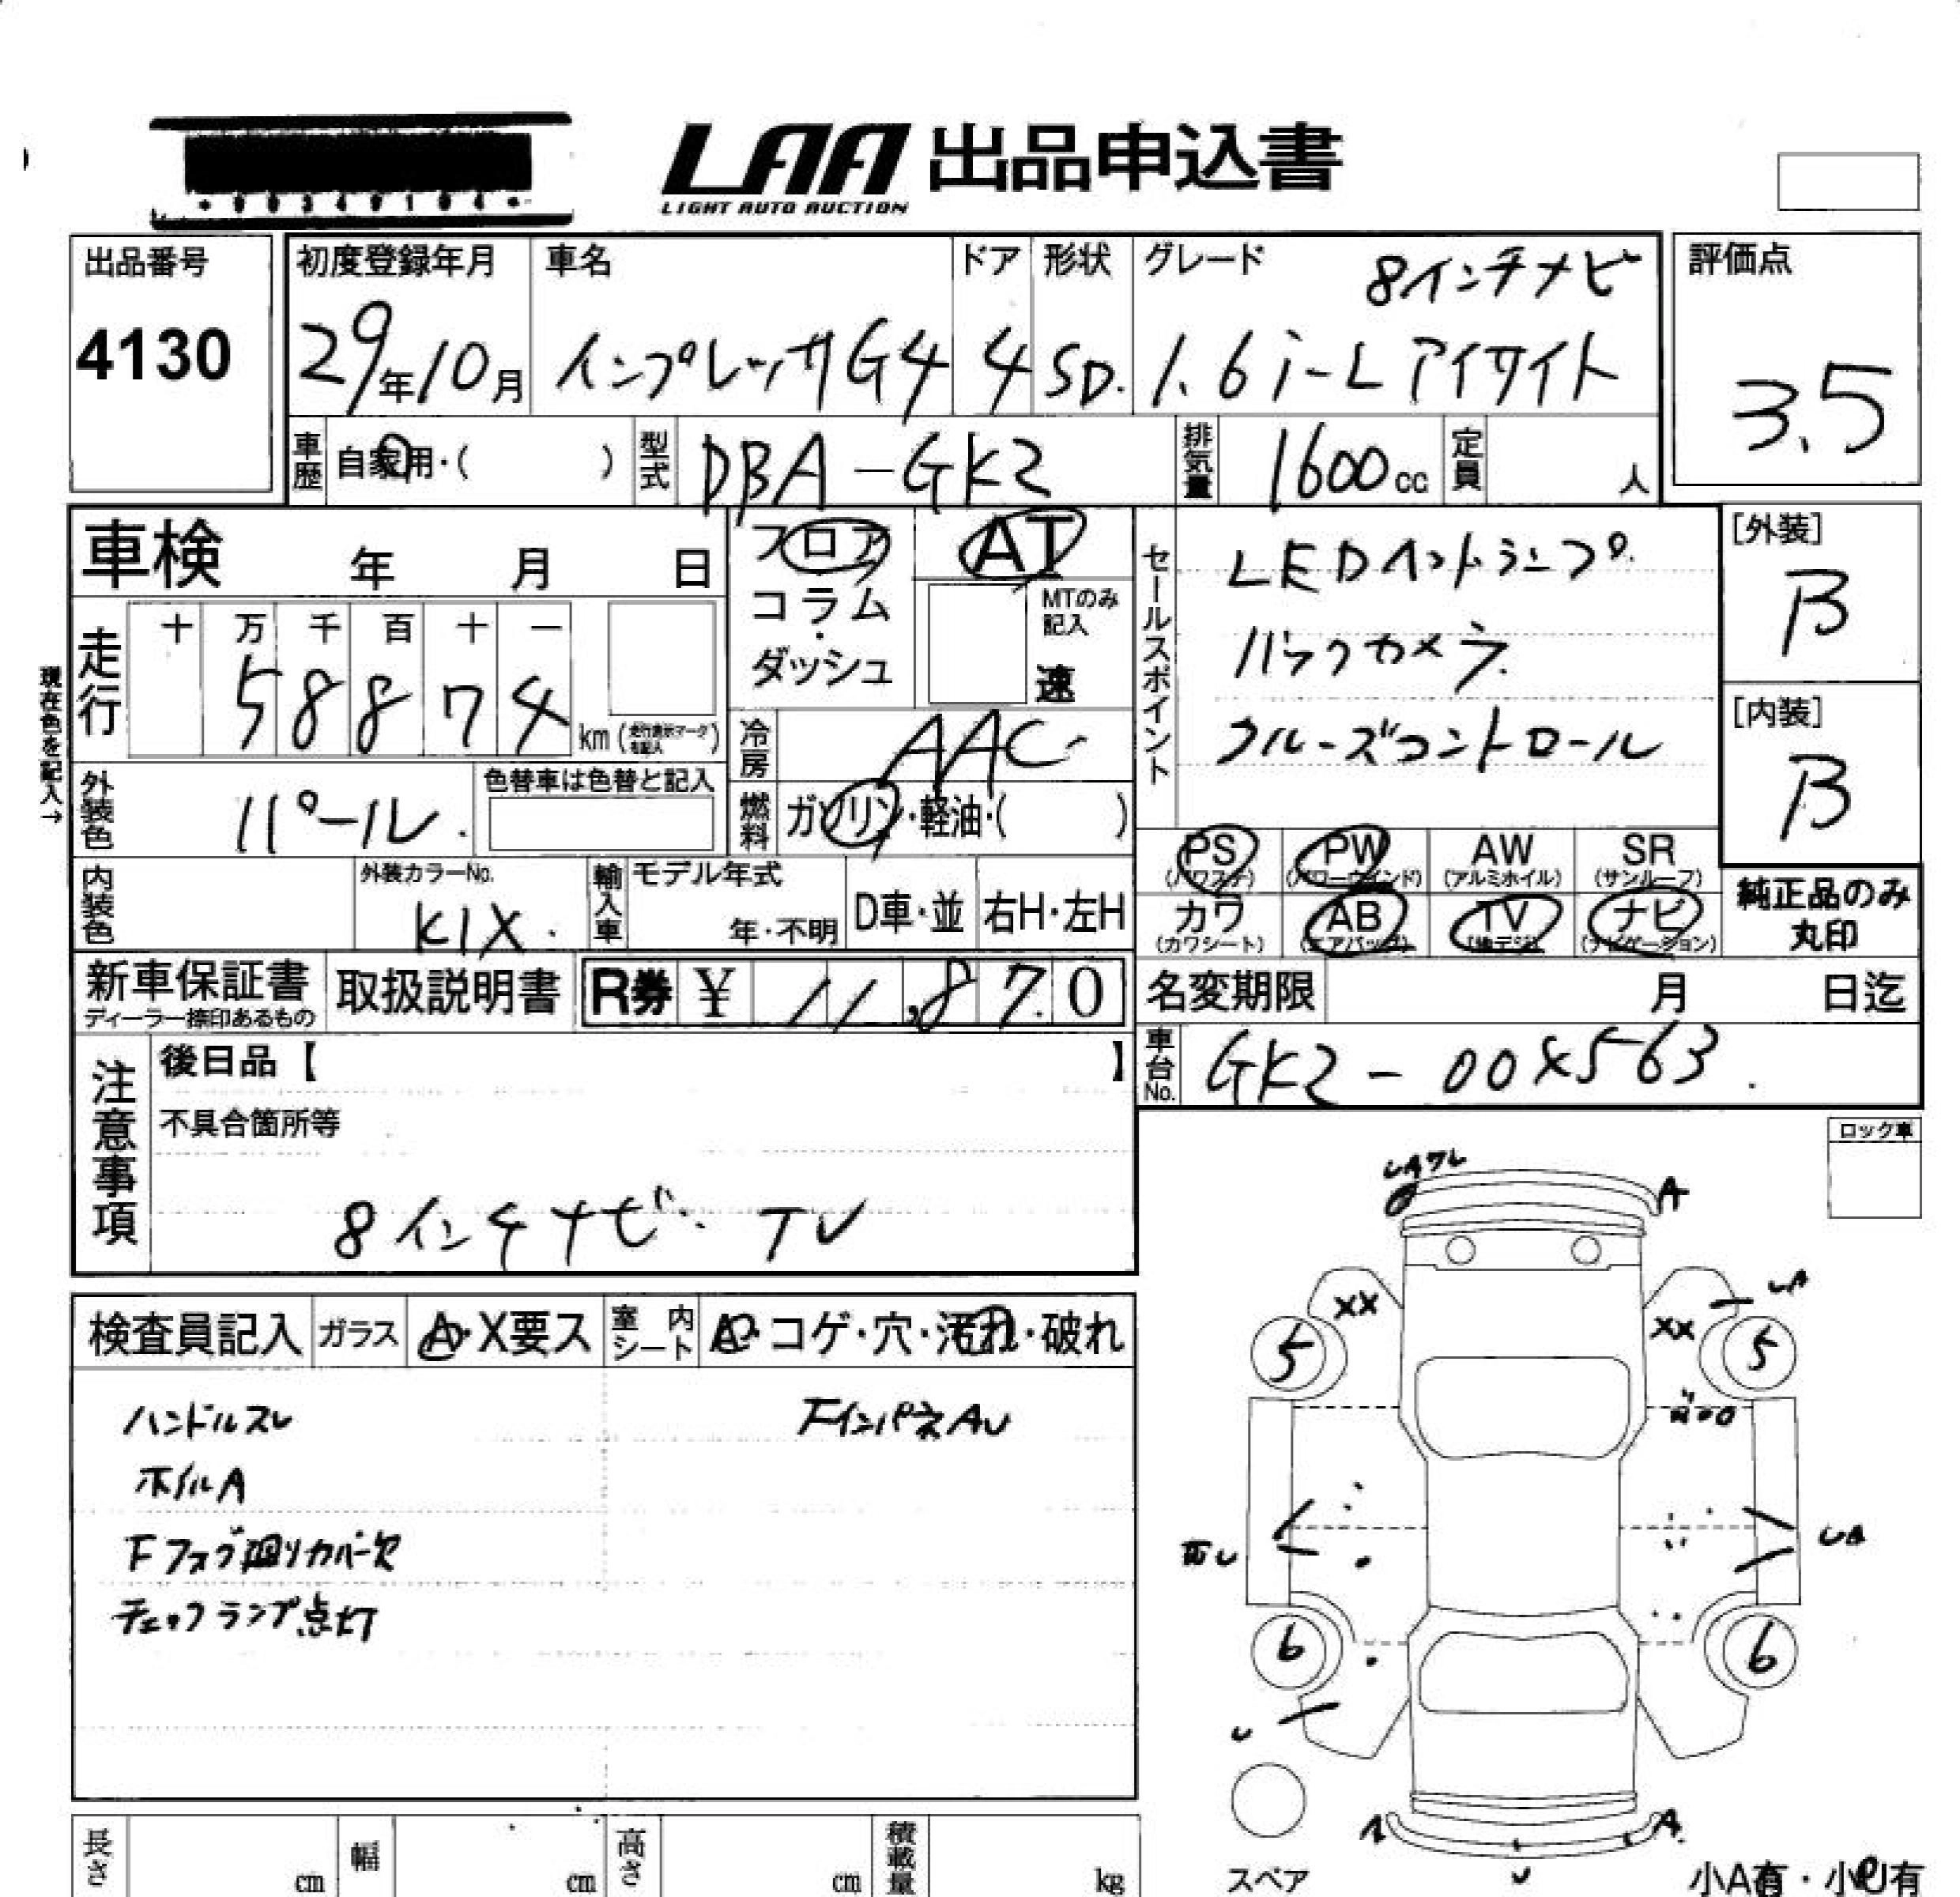 *00340104*
LAA 出品申込書
LIGHT AUTO AUCTION
出品番号
4130
初度登録年月
29年10月
車名
インプレッサG4
ドア
4
形状
SD.
グレード
8インチナビ
1.6i-L アイサイト
評価点
3.5
車歴
自家用・( )
型式
DBA-GK2
排気量
1600cc
定員
人
車検 年 月 日
フロア
コラム・
ダッシュ
AT
MTのみ記入
速
セールスポイント
LEDヘッドランプ
バックカメラ
クルーズコントロール
[外装]
B
[内装]
B
現在色を記入→
走行
十 万 千 百 十 一
5 8 8 7 4
km(走行表示マークを記入)
冷房
AAC
外装色
パール.
色替車は色替と記入
燃料
ガソリン・軽油・( )
PS
(パワステ)
PW
(パワーウインド)
AW
(アルミホイル)
SR
(サンルーフ)
カワ
(カワシート)
AB
(エアバッグ)
TV
(地デジ)
ナビ
(ナビゲーション)
純正品のみ
丸印
内装色
外装カラーNo.
K1X.
輸入車
モデル年式
年・不明
D車・並
右H・左H
新車保証書
ディーラー捺印あるもの
取扱説明書
R券 ¥ 11,870
名変期限 月 日迄
車台No.
GK2-00X563.
注意事項
後日品【 】
不具合箇所等
8インチナビ・TV
ロック車
検査員記入
ガラス
A・X要ス
室内シート
A・コゲ・穴・汚れ・破れ
ハンドルスレ
FインパネAU
ホイルA
Fフォグ廻りカバー欠
チェックランプ点灯
A
UA
XX
XX
5
5
UA
6
6
U
A
A
U
スペア
小A有・小U有
長さ cm
幅 cm
高さ cm
積載量 kg